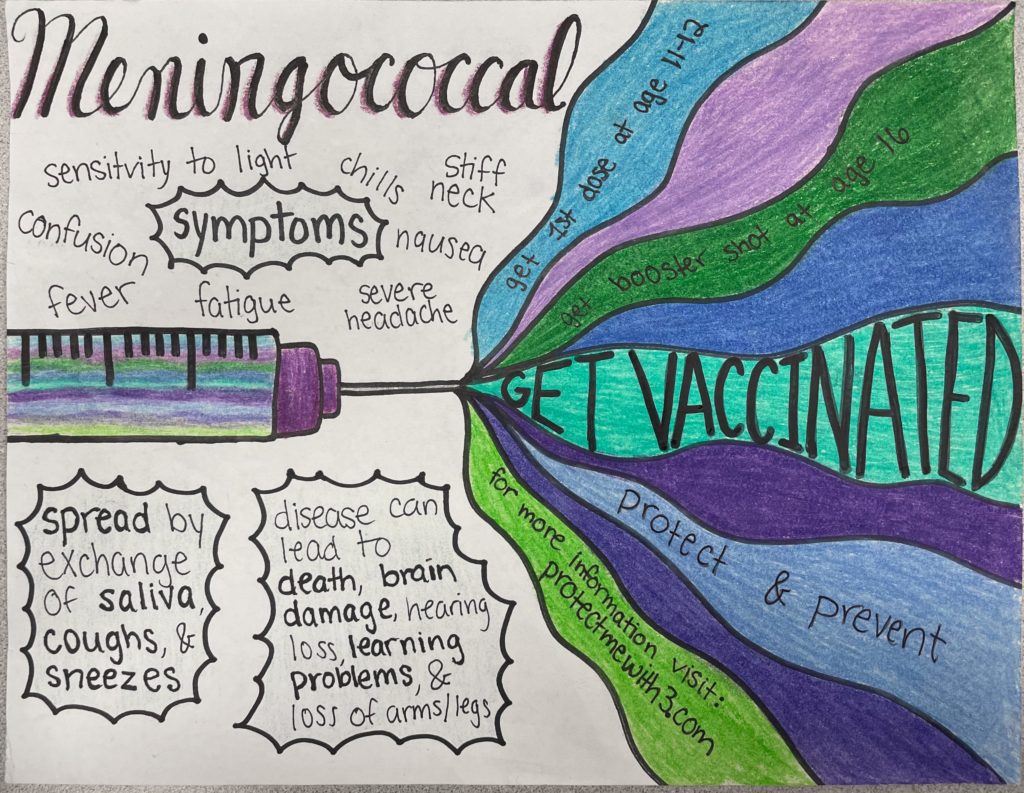 Meningococcal
sensitivity to light
chills
stiff
neck
symptoms
confusion
nausea
fever
fatigue
severe
headache
spread by
exchange
of saliva,
coughs, &
sneezes
disease can
lead to
death, brain
damage, hearing
loss, learning
problems, &
loss of arms/legs
get 1st dose at age 11-12
get booster shot at age 16
GET VACCINATED
protect & prevent
for more information visit:
protectmewith3.com